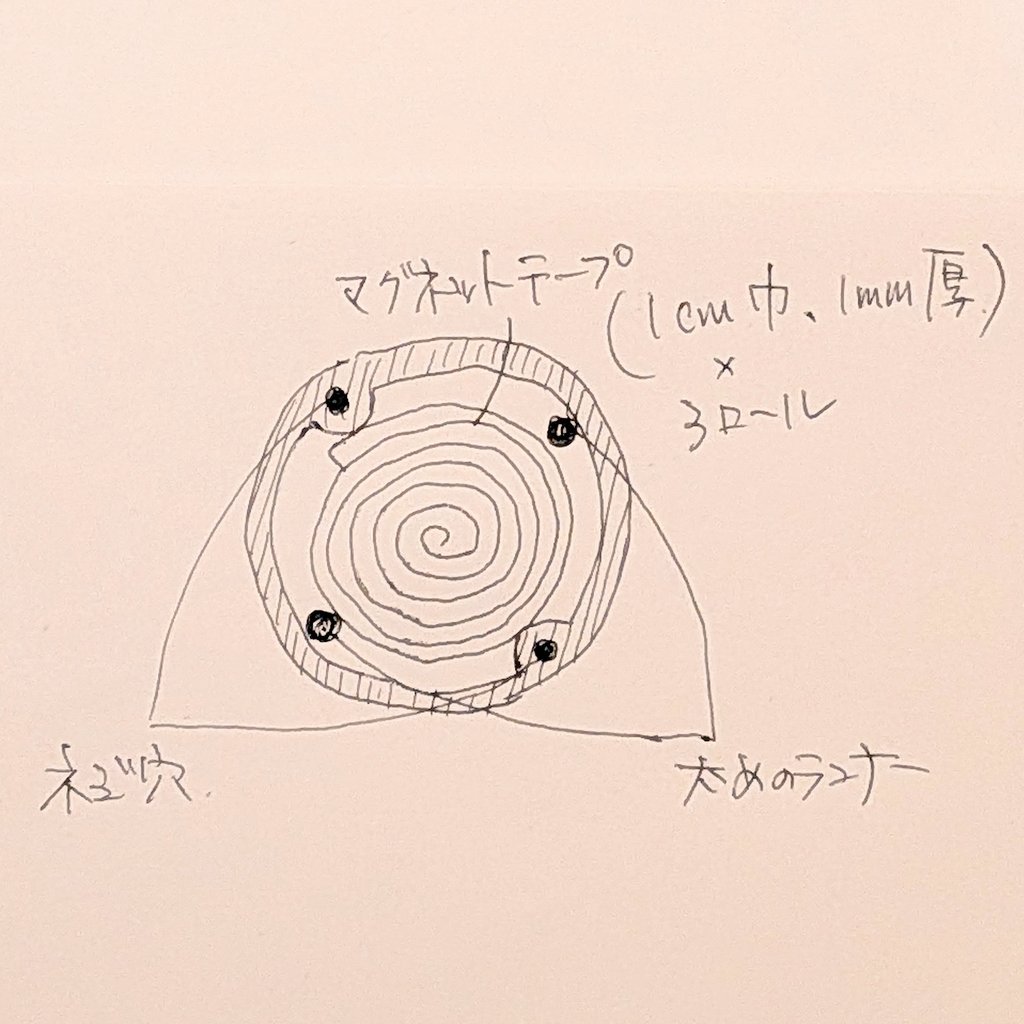 マグネットテープ
(1cm巾、1mm厚)
×
3ロール
ネジ穴
太めのランナー